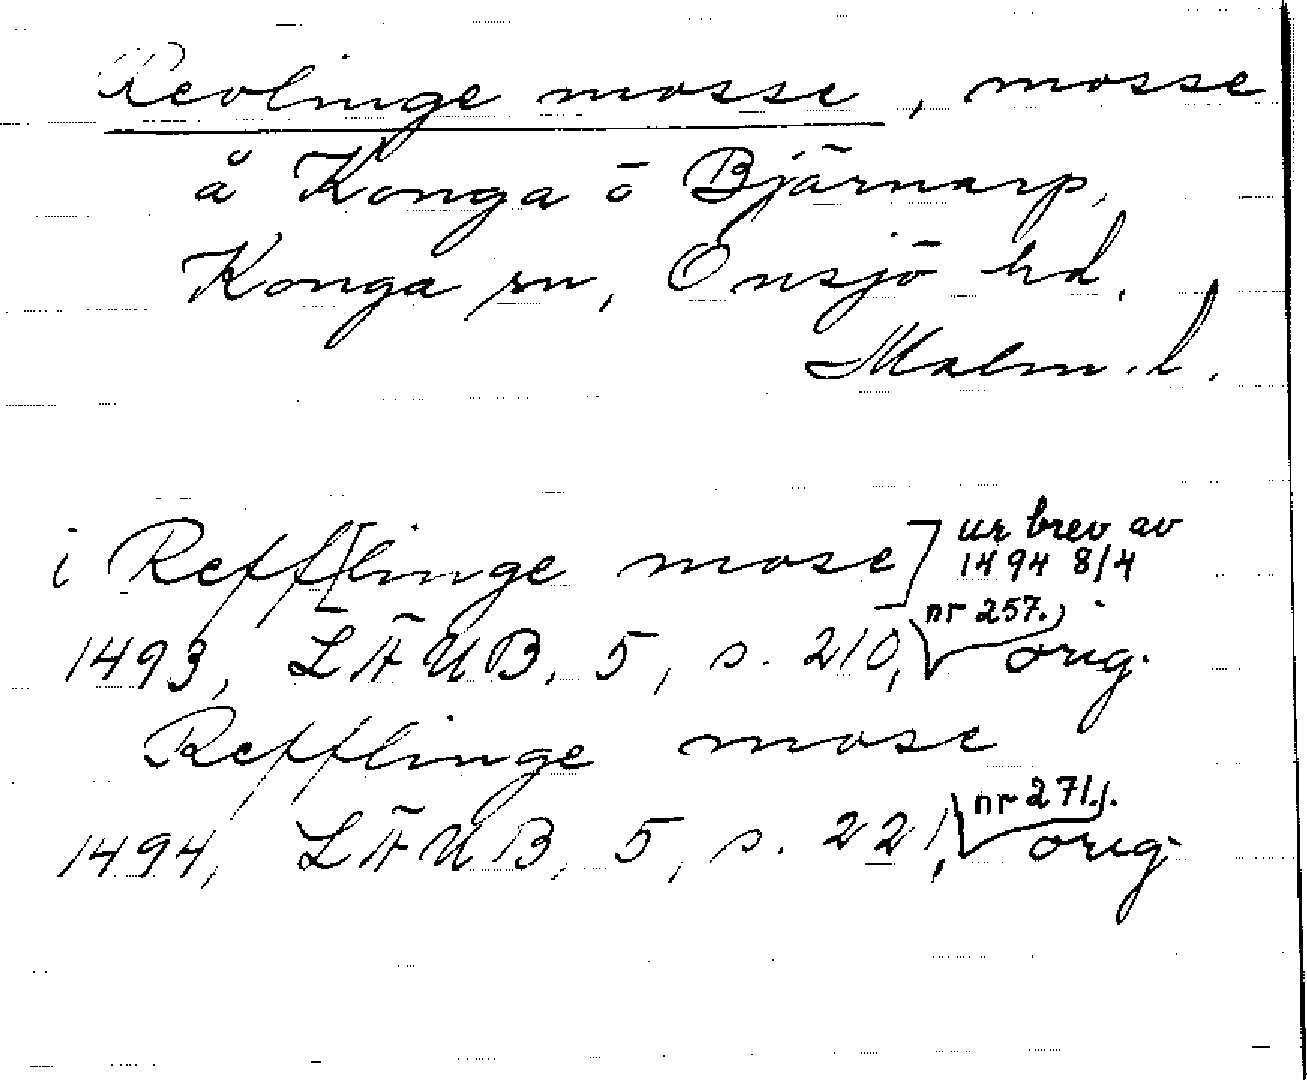 Revlinge mosse, mosse
å Konga ö Bjärnarp,
Konga sn, Onsjö hd,
Malm. l.
i Reff[linge mose] ur brev av 1494 8/4
1493, LÄUB. 5, s. 210, nr 257., orig.
Refflinge mose
1494, LÄUB, 5, s. 221, nr 271., orig.